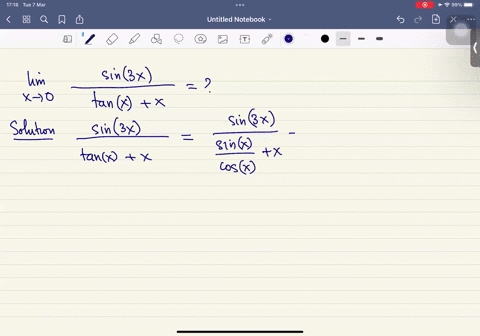 17:16 Tue 7 Mar
99%
Untitled Notebook
lim x→0 sin(3x) / tan(x) + x = ?
Solution sin(3x) / tan(x) + x = sin(3x) / sin(x) / cos(x) + x =